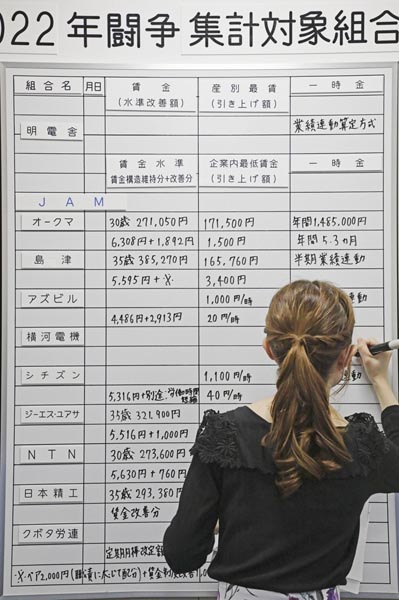 022年闘争 集計対象組合
組合名 月日 賃金 (水準改善額) 産別最賃 (引き上げ額) 一時金
明電舎 業績連動算定方式
賃金水準 賃金構造維持分+改善分 企業内最低賃金 (引き上げ額) 一時金
JAM
オークマ 30歳 271,050円 171,500円 年間1,485,000円
6,308円+1,892円 1,500円 年間5.3ヵ月
島津 35歳 385,270円 165,760円 半期業績連動
5,595円+※ 3,400円
アズビル 1,000円/時 動
4,486円+2,913円 20円/時
横河電機
シチズン 1,100円/時 動
5,316円+別途:労働時間短縮 40円/時
ジーエス・ユアサ 35歳 321,900円
5,516円+1,000円
NTN 30歳 273,600円
5,630円+760円
日本精工 35歳 293,380円
賃金改善分
クボタ労連
定期月棒改定額
※ベア2,000円(職責に応じて配分)+賃金制度改善1,0